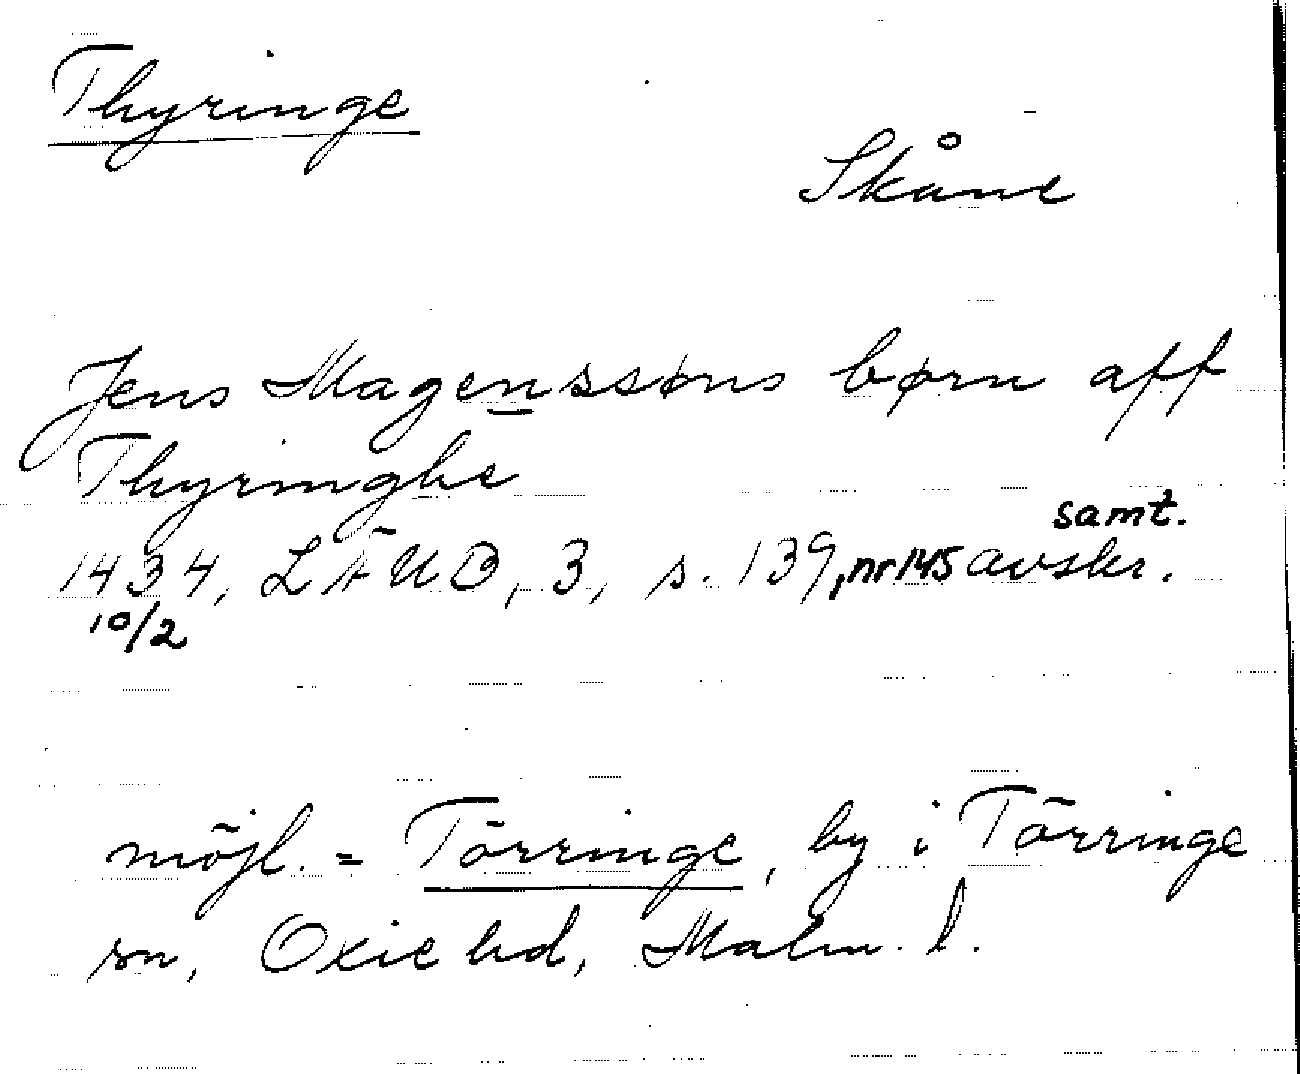 Thyringe
Skåne
Jens Magenssøns børn aff
Thyringhe
samt.
1434, LÄUB, 3, s. 139, nr 145 avskr.
10/2
möjl. = Törringe, by i Törringe
sn, Oxie hd, Malm. l.